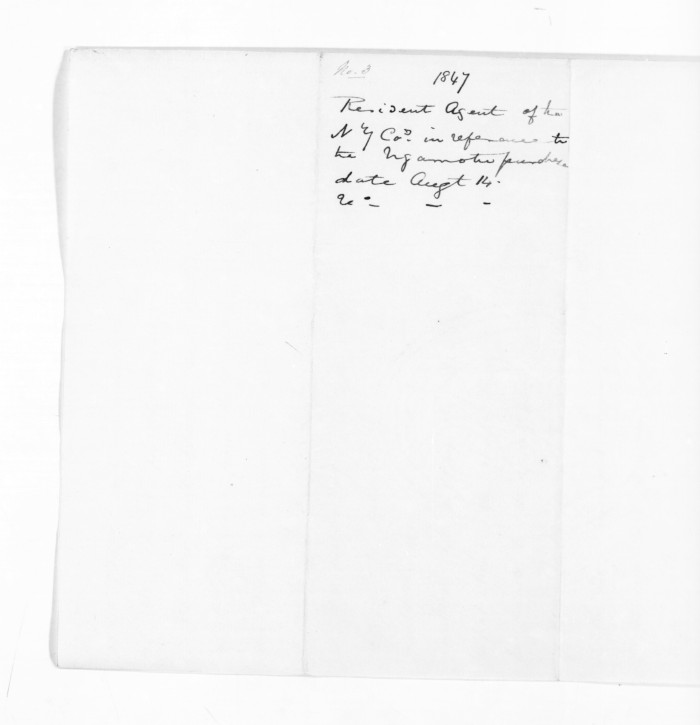 No. 3
1847
Resident Agent of the
N Z Co.s in reference to
the Ngamotu purchase
date Augt 14.